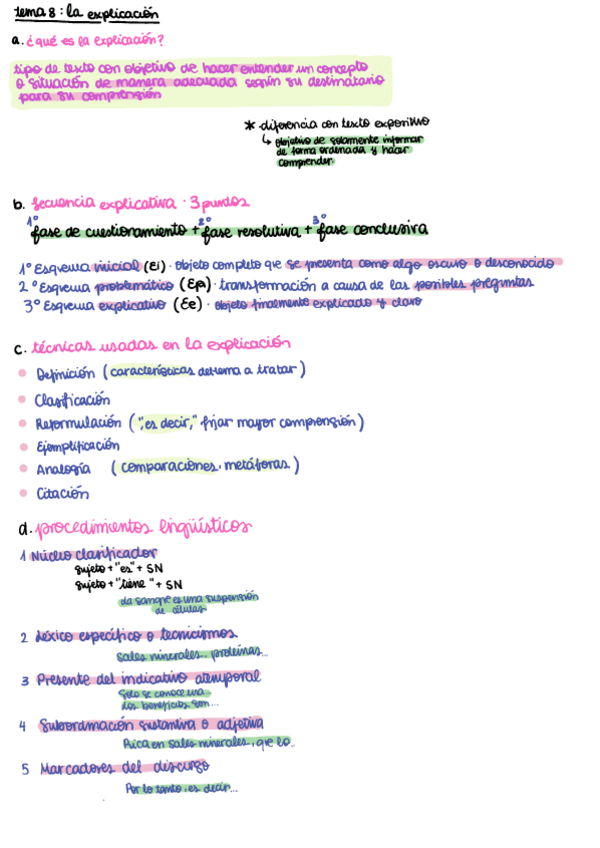 tema 8: la explicación
a. ¿qué es la explicación?
tipo de texto con objetivo de hacer entender un concepto
o situación de manera adecuada según su destinatario
para su comprensión
* diferencia con texto expositivo
↳ objetivo de solamente informar
de forma ordenada y hacer
comprender
b. secuencia explicativa · 3 puntos
1º 2º 3º
fase de cuestionamiento + fase resolutiva + fase conclusiva
1º Esquema inicial (Ei) · objeto completo que se presenta como algo oscuro o desconocido
2º Esquema problemático (Ep) · transformación a causa de las posibles preguntas
3º Esquema explicativo (Ee) · objeto finalmente explicado y claro
c. técnicas usadas en la explicación
• Definición (características del tema a tratar)
• Clasificación
• Reformulación (",es decir," fijar mayor comprensión)
• Ejemplificación
• Analogía (comparaciones, metáforas)
• Citación
d. procedimientos lingüísticos
1 Núcleo clarificador
sujeto + "es" + SN
sujeto + "tiene" + SN
La sangre es una suspensión
de células
2 Léxico específico o tecnicismos
Sales minerales, proteínas...
3 Presente del indicativo atemporal
Solo se conoce una
Los beneficios son...
4 Subordinación sustantiva o adjetiva
Rica en sales minerales, que lo...
5 Marcadores del discurso
Por lo tanto, es decir...